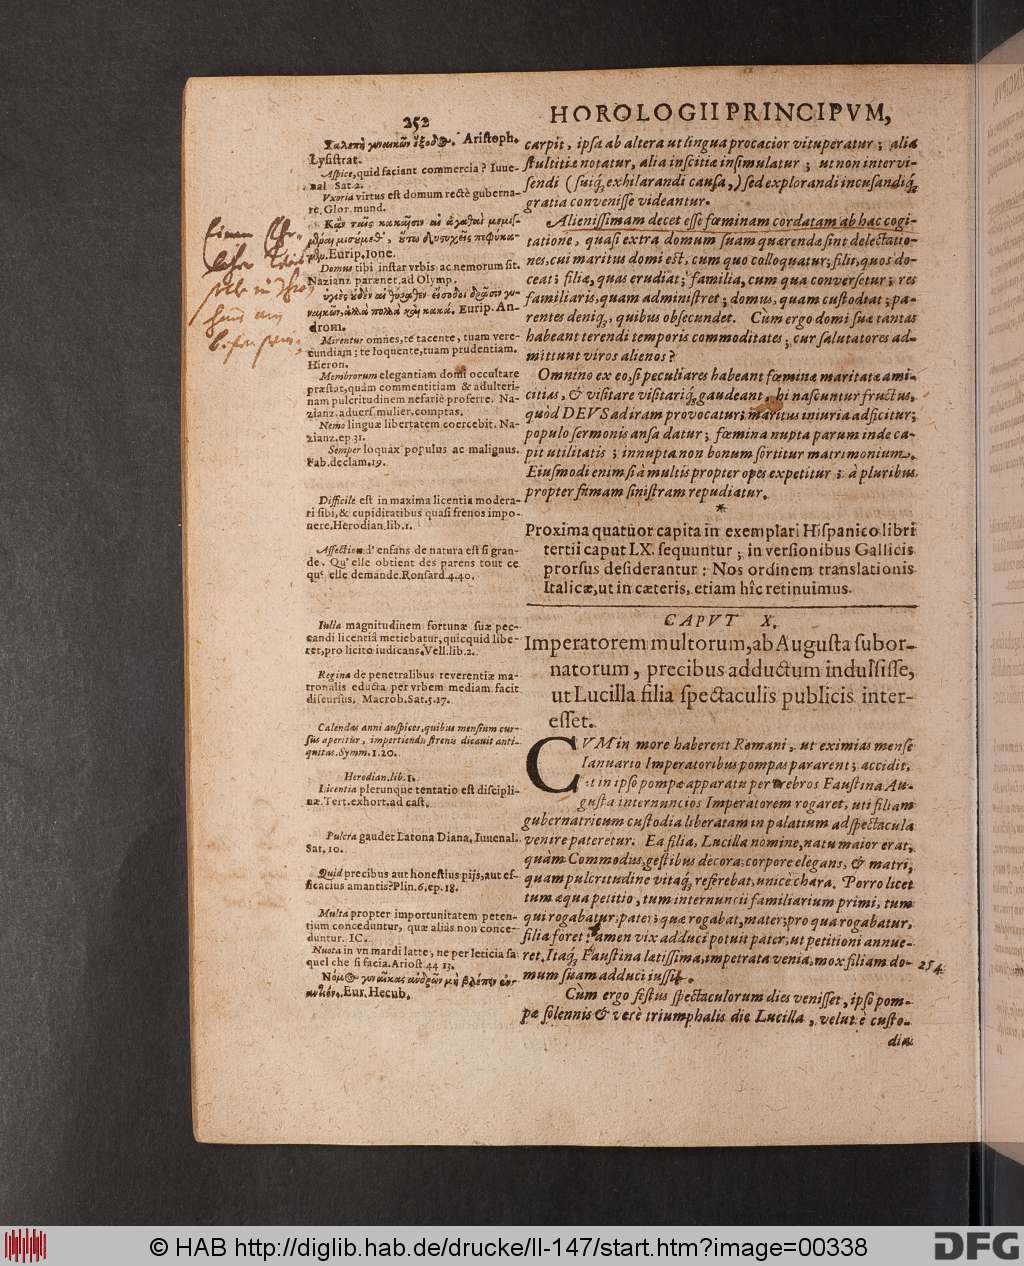 252
HOROLOGII PRINCIPVM,
Χαλεπὴ γυναικῶν ἔξοδος. Aristoph.
Lysistrat.
Aspice, quid faciant commercia? Iuue-
nal. Sat. 2.
Vxoria virtus est domum rectè guberna-
re. Glor. mund.
Eurip. Ione.
Domus tibi instar vrbis ac nemorum sit.
Nazianz. parænet. ad Olymp.
Eurip. An-
drom.
Mirentur omnes, te tacente, tuam vere-
cundiam; te loquente, tuam prudentiam.
Hieron.
Membrorum elegantiam domi occultare
præstat, quàm commentitiam & adulteri-
nam pulcritudinem nefariè proferre. Na-
zianz. aduers. mulier. comptas.
Nemo linguæ libertatem coercebit. Na-
zianz. ep. 31.
Semper loquax populus ac malignus.
Fab. declam. 19.
Difficile est in maxima licentia modera-
ri sibi, & cupiditatibus quasi frenos impo-
nere. Herodian. lib. 1.
Affection d'enfans de natura est si gran-
de. Qu'elle obtient des parens tout ce
qu'elle demande. Ronsard. 4. 40.
Iulia magnitudinem fortunæ suæ pec-
candi licentiâ metiebatur, quicquid libe-
ret, pro licito iudicans. Vell. lib. 2.
Regina de penetralibus reuerentiæ ma-
tronalis educta per vrbem mediam facit
discursus. Macrob. Sat. 5. 17.
Calendas anni auspices, quibus mensium cur-
sus aperitur, impertiendis strenis dicauit anti-
quitas. Symm. 1. 20.
Herodian. lib. 1.
Licentia plerunque tentatio est discipli-
næ. Tert. exhort. ad cast.
Pulcra gaudet Latona Diana. Iuuenal.
Sat. 10.
Quid precibus aut honestius pijs, aut ef-
ficacius amantis? Plin. 6. ep. 18.
Multa propter importunitatem peten-
tium conceduntur, quæ aliàs non conce-
duntur. IC.
Nuota in vn mardi latte, ne per leticia sa
quel che si facia. Ariost. 44 13.
Eur. Hecub.
carpit, ipsa ab altera ut lingua procacior vituperatur; alia
stultitiæ notatur, alia inscitiæ insimulatur; ut non intervi-
sendi (suiq́; exhilarandi causa,) sed explorandi incusandiq́;
gratia convenisse videantur.
Alienissimam decet esse fœminam cordatam ab hac cogi-
tatione, quasi extra domum suam quærendæ sint delectatio-
nes, cui maritus domi est, cum quo colloquatur; filii, quos do-
ceat; filiæ, quas erudiat; familia, cum qua conversetur; res
familiaris, quam administret; domus, quam custodiat; pa-
rentes deniq́;, quibus obsecundet. Cùm ergo domi suæ tantas
habeant terendi temporis commoditates; cur salutatores ad-
mittunt viros alienos?
Omnino ex eo, si peculiares habeant fœminæ maritatæ ami-
citias, & visitare visitariq́; gaudeant, hi nascuntur fructus,
quòd DEVS ad iram provocatur; maritus iniuria adficitur;
populo sermonis ansa datur; fœmina nupta parum inde ca-
pit utilitatis; innupta non bonum sortitur matrimonium.
Eiusmodi enim, si à multis propter opes expetitur; à pluribus
propter famam sinistram repudiatur.
*
Proxima quatuor capita in exemplari Hispanico libri
tertii caput LX. sequuntur; in versionibus Gallicis
prorsus desiderantur: Nos ordinem translationis
Italicæ, ut in cæteris, etiam hîc retinuimus.
CAPVT X.
Imperatorem multorum, ab Augusta subor-
natorum, precibus adductum indulsisse,
ut Lucilla filia spectaculis publicis inter-
esset.
CVM in more haberent Romani, ut eximias mense
Ianuario Imperatoribus pompas pararent; accidit,
ut in ipso pompæ apparatu per crebros Faustina Au-
gusta internuncios Imperatorem rogaret, uti filiam
gubernatricum custodia liberatam in palatium ad spectacula
venire pateretur. Ea filia, Lucilla nomine, natu maior erat,
quàm Commodus, gestibus decora, corpore elegans, & matri,
quam pulcritudine vitaq́; referebat, unicè chara. Porro licet
tum æqua petitio, tum internuncii familiarium primi, tum
qui rogabatur, pater; quæ rogabat, mater; pro qua rogabatur,
filia foret: tamen vix adduci potuit pater, ut petitioni annue-
ret. Itaq́; Faustina lætissima, impetrata venia, mox filiam do-
mum suam adduci iussit.
254
Cùm ergo festus spectaculorum dies venisset, ipso pom-
pæ solennis & verè triumphalis die Lucilla, velut è custo-
dia
© HAB http://diglib.hab.de/drucke/li-147/start.htm?image=00338
DFG